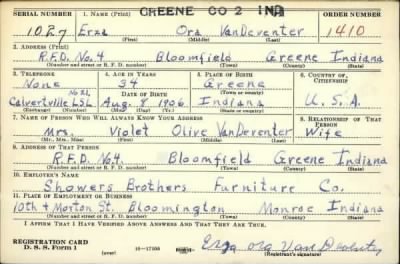 GREENE CO 2 IND
SERIAL NUMBER 1. NAME (Print) ORDER NUMBER
1027 Erza Ora VanDeventer 1410
(First) (Middle) (Last)
2. ADDRESS (Print)
R.F.D. No. 4 Bloomfield Greene Indiana
(Number and street or R. F. D. number) (Town) (County) (State)
3. TELEPHONE 4. AGE IN YEARS 5. PLACE OF BIRTH 6. COUNTRY OF CITIZENSHIP
None 34 Greene
DATE OF BIRTH (Town or county)
Calvertville Aug. 8 1906 Indiana U.S.A.
7. NAME OF PERSON WHO WILL ALWAYS KNOW YOUR ADDRESS 8. RELATIONSHIP OF THAT PERSON
Mrs. Violet Olive VanDeventer Wife
(Mr., Mrs., Miss) (First) (Middle) (Last)
9. ADDRESS OF THAT PERSON
R.F.D. No4. Bloomfield Greene Indiana
(Number and street or R. F. D. number) (Town) (County) (State)
10. EMPLOYER'S NAME
Showers Brothers Furniture Co.
11. PLACE OF EMPLOYMENT OR BUSINESS
10th & Morton St. Bloomington Monroe Indiana
(Number and street or R. F. D. number) (Town) (County) (State)
I AFFIRM THAT I HAVE VERIFIED ABOVE ANSWERS AND THAT THEY ARE TRUE.
REGISTRATION CARD
D. S. S. Form 1 (over) 16-17105 (Registrant's signature)